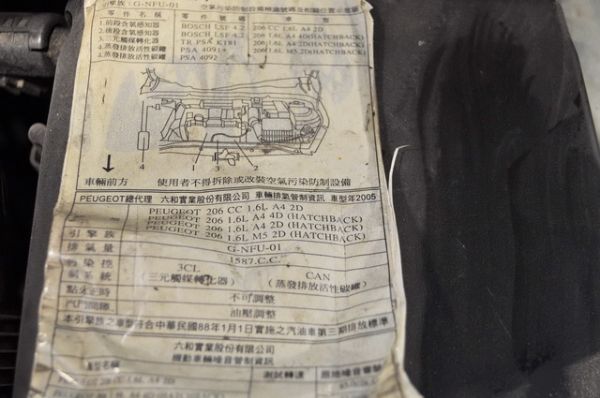 引擎族:G-NFU-01
零件名稱 零件號碼
1.前段含氧感知器 BOSCH LSF 4.2 206 CC 1.6L A4 2D
2.後段含氧感知器 BOSCH LSF 4.2 206 1.6L A4 4D(HATCHBACK)
3.三元觸媒轉化器 TR PSA K181 206 1.6L A4 2D(HATCHBACK)
4.蒸發排放活性碳罐 PSA 4091 206 1.6L M5 2D(HATCHBACK)
4.蒸發排放活性碳罐 PSA 4092
4 1 3 2
車輛前方 使用者不得拆除或改裝空氣污染防制設備
PEUGEOT總代理 六和實業股份有限公司 車輛排氣管制資訊 車型年2005
PEUGEOT 206 CC 1.6L A4 2D
PEUGEOT 206 1.6L A4 4D (HATCHBACK)
PEUGEOT 206 1.6L A4 2D (HATCHBACK)
PEUGEOT 206 1.6L M5 2D (HATCHBACK)
引擎族 G-NFU-01
排氣量 1587.C.C.
污染控
制系統 3CL CAN
(三元觸媒轉化器) (蒸發排放活性碳罐)
點火正時 不可調整
汽門間隙 油壓調整
本引擎族之車型符合中華民國88年1月1日實施之汽油車第三期排放標準
六和實業股份有限公司
機動車輛噪音管制資訊
車型名稱 測試轉速 原地噪音量
PEUGEOT 206 CC 1.6L A4 2D